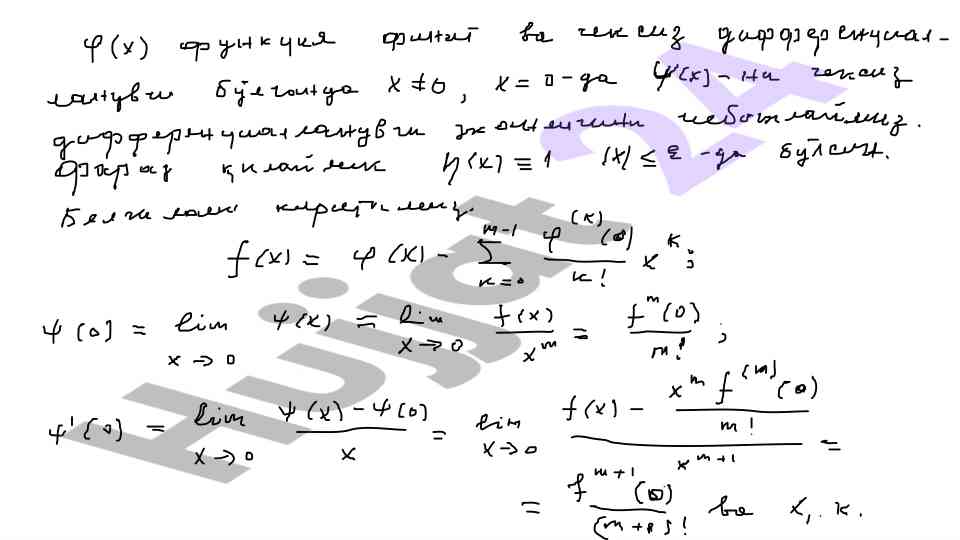 φ(x) функция финит ва чексиз дифференциал-
ланувчи бўлганда x ≠ 0, x = 0-да ψ(x)-ни чексиз
дифференциалланувчи эканлигини исботлаймиз.
Фараз қилайлик η(x) ≡ 1 |x| ≤ ε -да бўлсин.
Белгилаш киритамиз.
f(x) = φ(x) - \sum_{k=0}^{m-1} \frac{φ^{(k)}(0)}{k!} x^k;
ψ(0) = \lim_{x→0} ψ(x) = \lim_{x→0} \frac{f(x)}{x^m} = \frac{f^m(0)}{m!};
ψ'(0) = \lim_{x→0} \frac{ψ(x) - ψ(0)}{x} = \lim_{x→0} \frac{f(x) - \frac{x^m f^{(m)}(0)}{m!}}{x^{m+1}} =
= \frac{f^{m+1}(0)}{(m+1)!} ва х,.к.
Hujjat 24